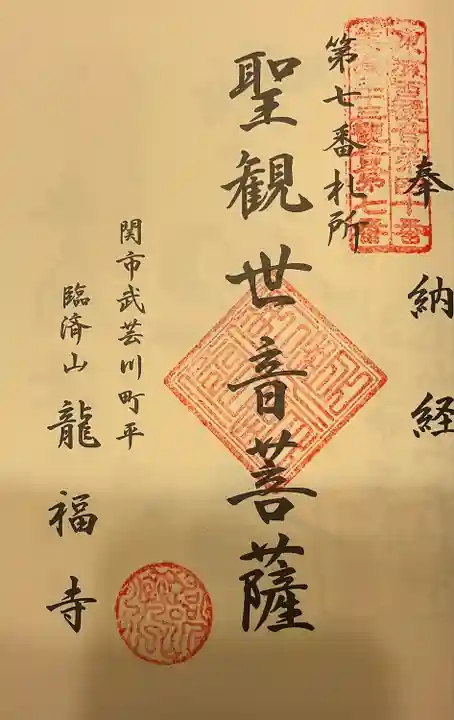 奉納経
第七番札所
聖観世音菩薩
関市武芸川町平
臨済山 龍福寺